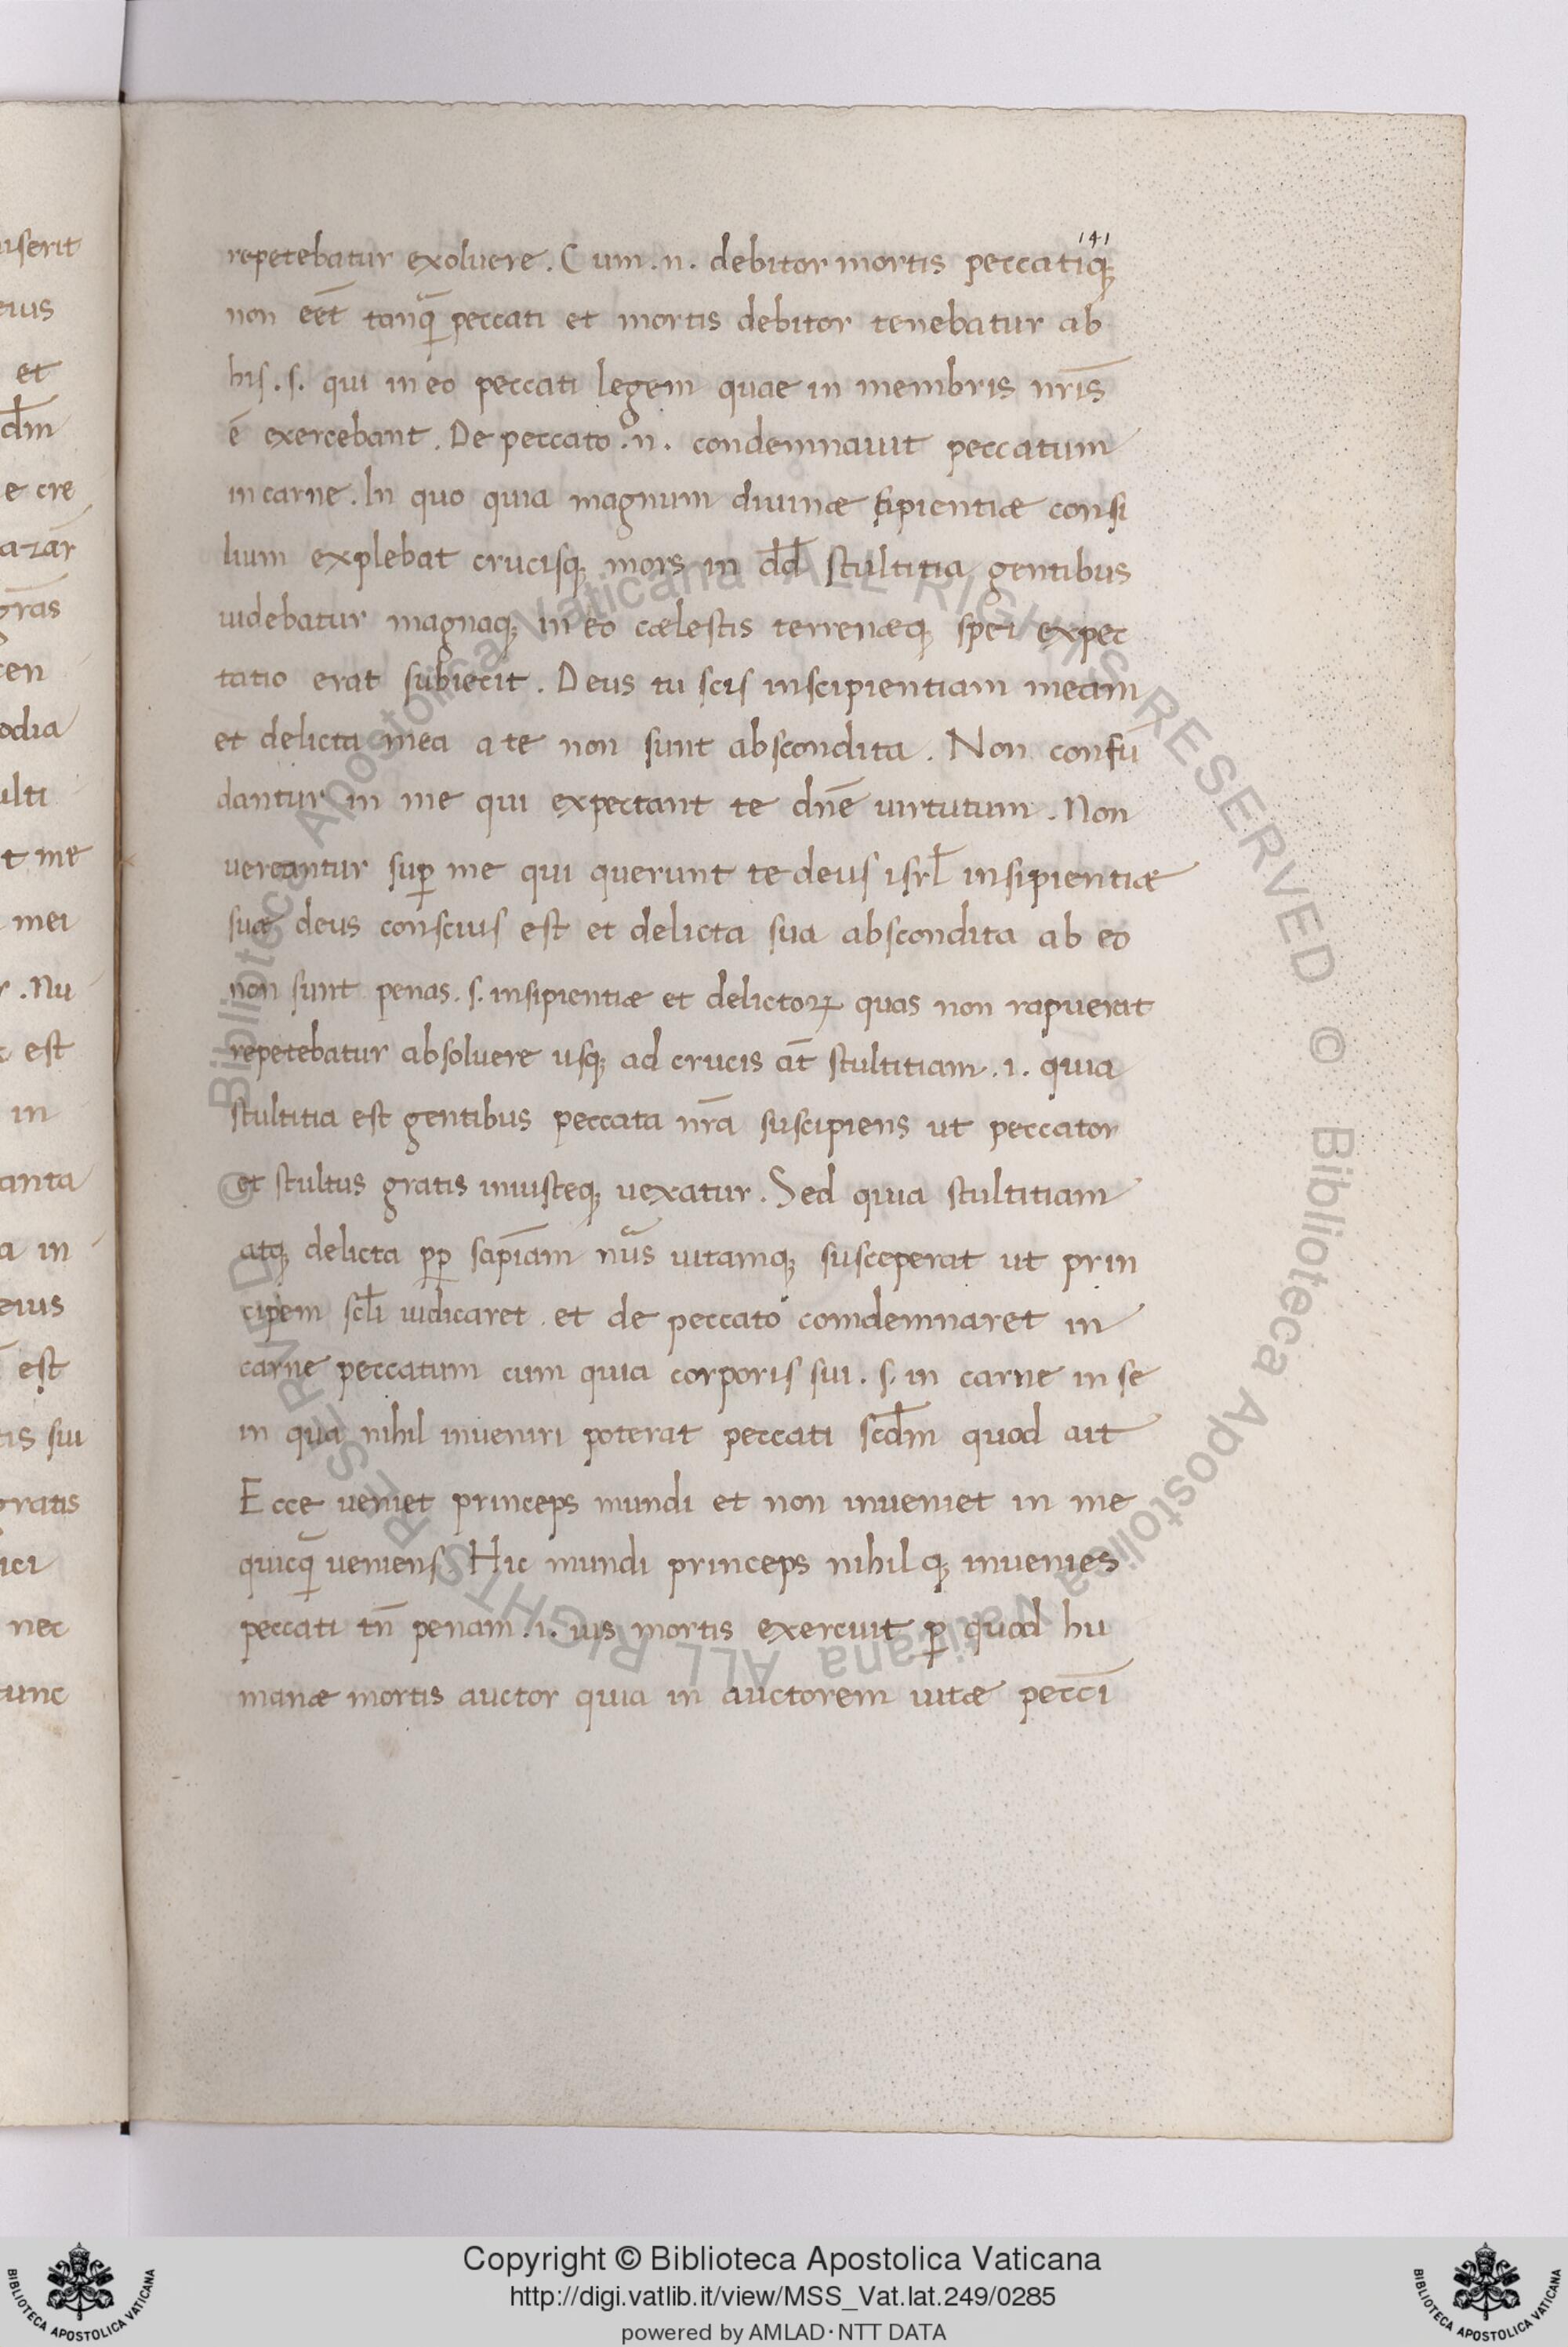 141
repetebatur exoluere. Cum .n. debitor mortis peccatiq;
non eēt tanq̄ peccati et mortis debitor tenebatur ab
his .s. qui in eo peccati legem quae in membris nr̄is
ē exercebant. De peccato .n. condemnauit peccatum
in carne. In quo quia magnum diuinæ sipientiæ consi
lium explebat crucisq; mors in dd̄ stultitia gentibus
uidebatur magnaq; in eo cælestis terrenæq; spei expec
tatio erat subiecit. Deus tu scis inscipientiam meam
et delicta mea a te non sunt abscondita. Non confū
dantur in me qui expectant te dn̄e uirtutum. Non
uereantur suꝑ me qui querunt te deus isrl̄ insipientiæ
suæ deus conscius est et delicta sua abscondita ab eo
non sunt penas .s. insipientiæ et delictoꝝ quas non rapuerat
repetebatur absoluere usq; ad crucis at̄ stultitiam .i. quia
stultitia est gentibus peccata nr̄a suscipiens ut peccator
et stultus gratis iniusteq; uexatur. Sed quia stultitiam
atq; delicta ꝑꝑ sapīam nūs uitamq; susceperat ut prin
cipem scl̄i iudicaret et de peccato comdemnaret in
carne peccatum cum quia corporis sui .s. in carne in se
in qua nihil inueniri poterat peccati scd̄m quod ait
Ecce ueniet princeps mundi et non inueniet in me
quicq̄ ueniens Hic mundi princeps nihilq; inuenies
peccati tn̄ penam .i. ius mortis exercuit ꝑ quod hu
manæ mortis auctor quia in auctorem uitæ pecc̄i
userit
eius
et
dm̄
e cre
azar̄
gr̄as
cen
odia
ulti
t me
mei
r. Nu
est
in
anta
a in
eius
est
tis sui
gratis
ici
nec
tunc
© Biblioteca Apostolica Vaticana ALL RIGHTS RESERVED © Biblioteca Apostolica Vaticana ALL RIGHTS RESERVED
BIBLIOTECA APOSTOLICA VATICANA
Copyright © Biblioteca Apostolica Vaticana
http://digi.vatlib.it/view/MSS_Vat.lat.249/0285
powered by AMLAD·NTT DATA
BIBLIOTECA APOSTOLICA VATICANA